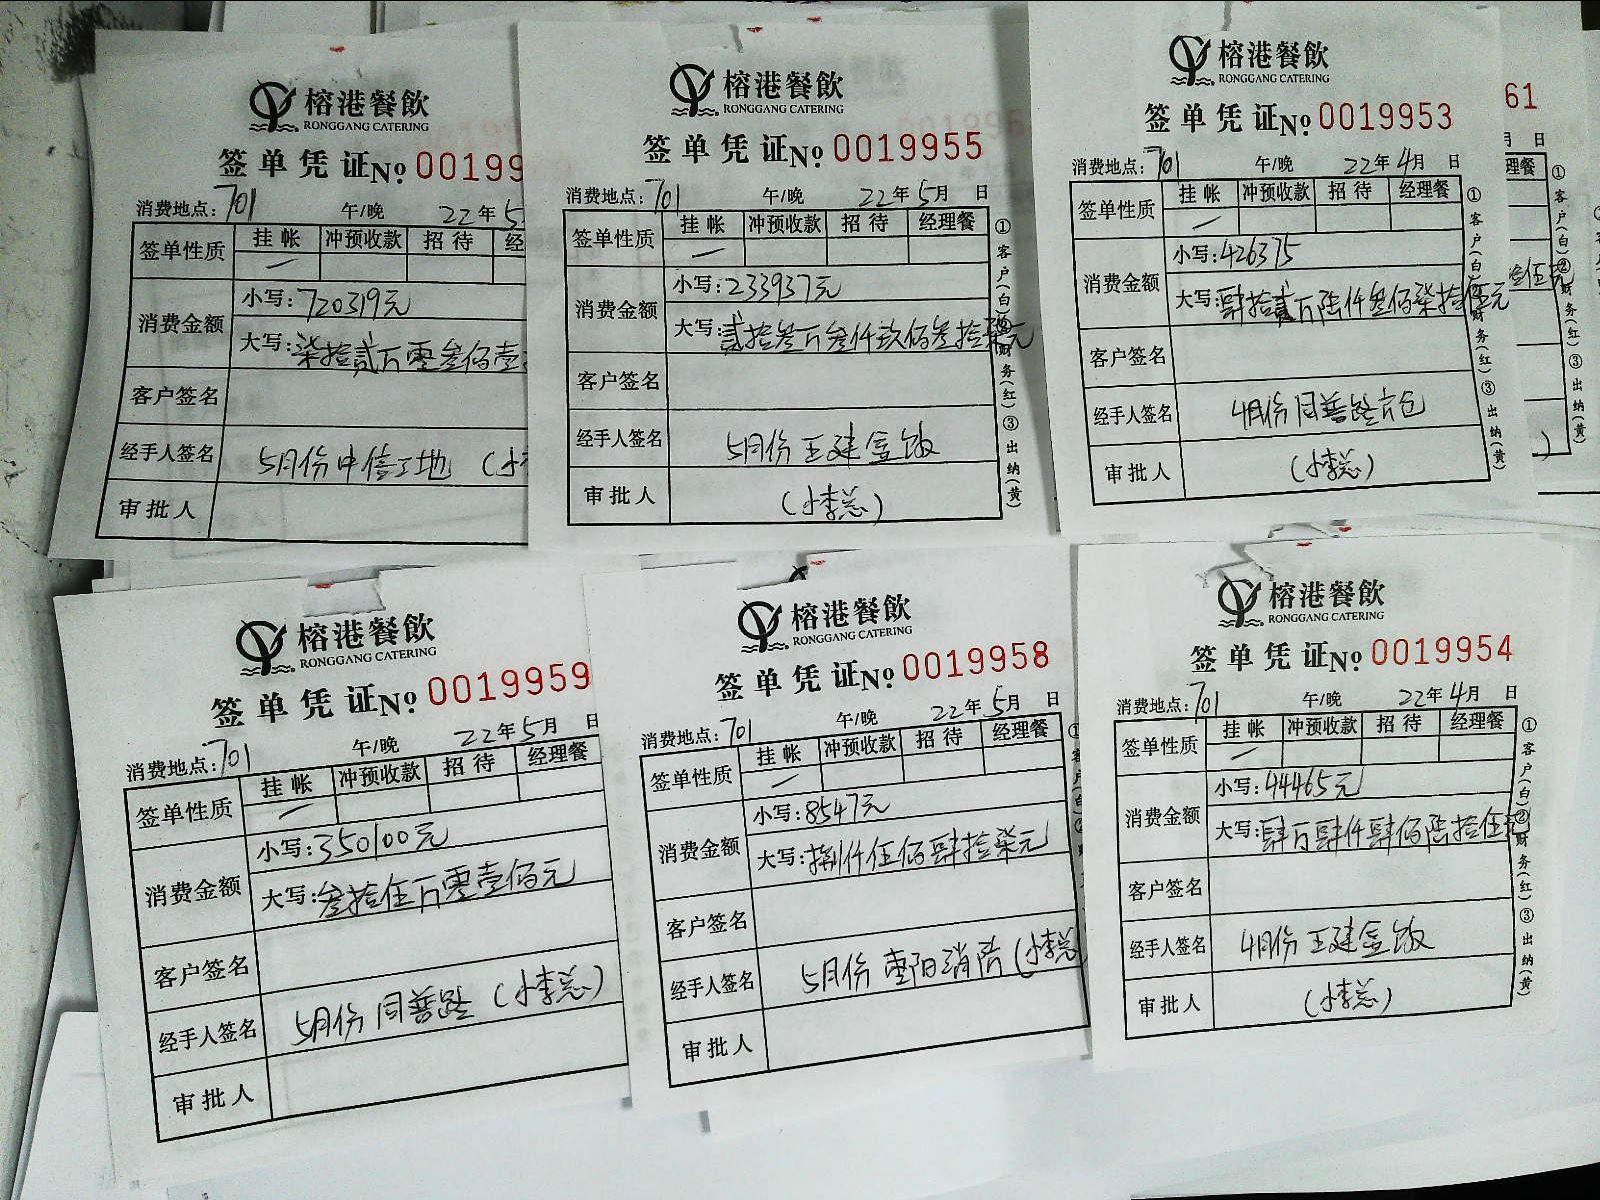 榕港餐飲
RONGGANG CATERING
签单凭证№ 00199
消费地点: 701 午/晚 22年5
签单性质 挂帐 冲预收款 招待 经
消费金额 小写: 720319元
大写: 柒拾贰万零叁佰壹
客户签名
经手人签名 5月份中信工地 (小
审批人
榕港餐飲
RONGGANG CATERING
签单凭证№ 0019955
消费地点: 701 午/晚 22年5月 日
签单性质 挂帐 冲预收款 招待 经理餐
消费金额 小写: 233937元
大写: 贰拾叁万叁仟玖佰叁拾柒元
客户签名
经手人签名 5月份王建盒饭
审批人 (小李总)
①客户(白)②财务(红)③出纳(黄)
榕港餐飲
RONGGANG CATERING
签单凭证№ 0019953
消费地点: 701 午/晚 22年4月 日
签单性质 挂帐 冲预收款 招待 经理餐
消费金额 小写: 426375
大写: 肆拾贰万陆仟叁佰柒拾伍元
客户签名
经手人签名 4月份同善路六包
审批人 (小李总)
①客户(白)②财务(红)③出纳(黄)
61
月 日
理餐
拾伍元
①客户(白)②财务(红)③出纳(黄)
榕港餐飲
RONGGANG CATERING
签单凭证№ 0019959
消费地点: 701 午/晚 22年5月 日
签单性质 挂帐 冲预收款 招待 经理餐
消费金额 小写: 350100元
大写: 叁拾伍万零壹佰元
客户签名
经手人签名 5月份同善路 (小李总)
审批人
榕港餐飲
RONGGANG CATERING
签单凭证№ 0019958
消费地点: 701 午/晚 22年5月 日
签单性质 挂帐 冲预收款 招待 经理餐
消费金额 小写: 8547元
大写: 捌仟伍佰肆拾柒元
客户签名
经手人签名 5月份枣阳消防 (小李总
审批人
榕港餐飲
RONGGANG CATERING
签单凭证№ 0019954
消费地点: 701 午/晚 22年4月 日
签单性质 挂帐 冲预收款 招待 经理餐
消费金额 小写: 44465元
大写: 肆万肆仟肆佰陆拾伍元
客户签名
经手人签名 4月份王建盒饭
审批人 (小李总)
①客户(白)②财务(红)③出纳(黄)